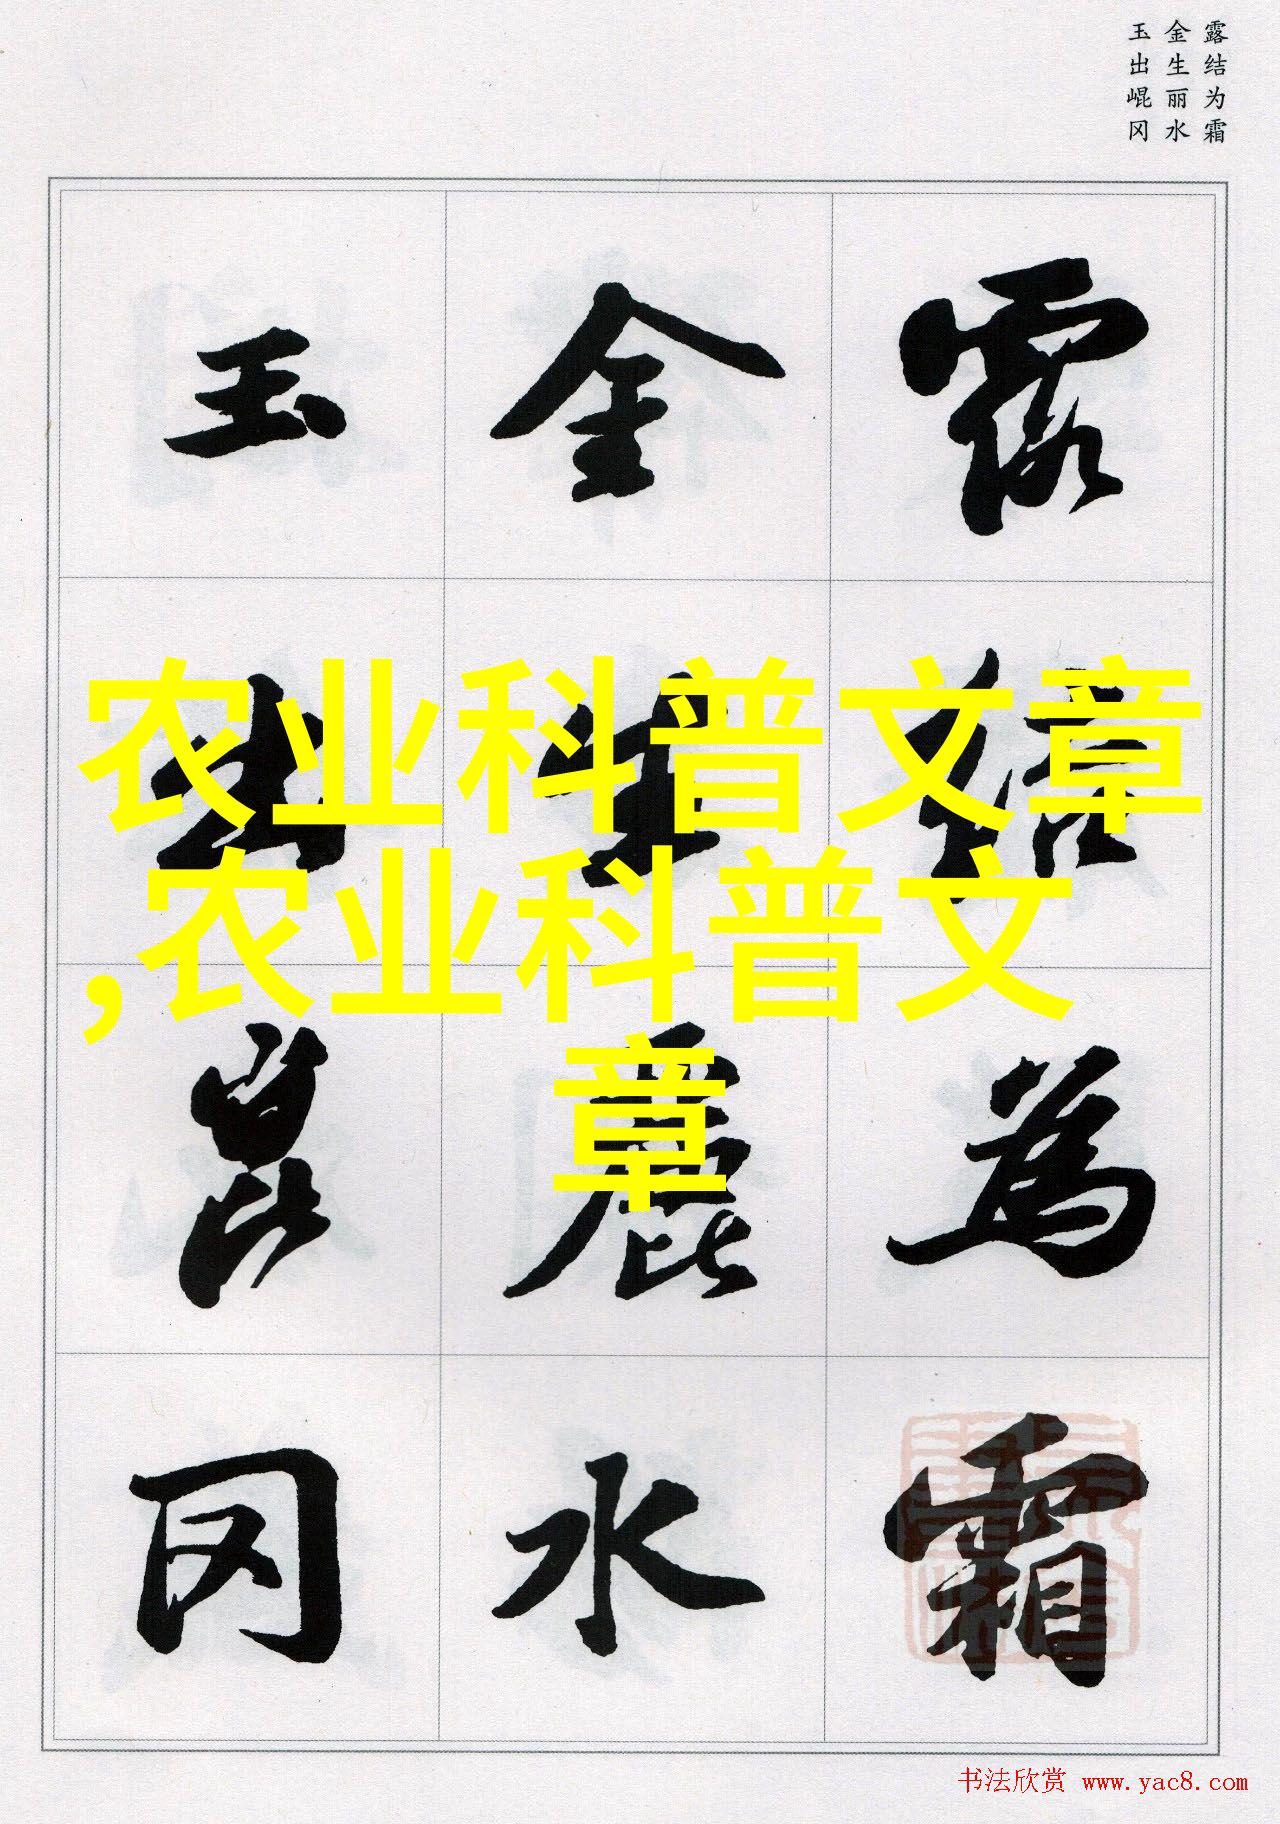 露结为霜
金生丽水
玉出崐冈
露结为霜
金生麗水
玉出崑冈
农业科普文章
,农业科普文
章
书法欣赏 www.yac8.com